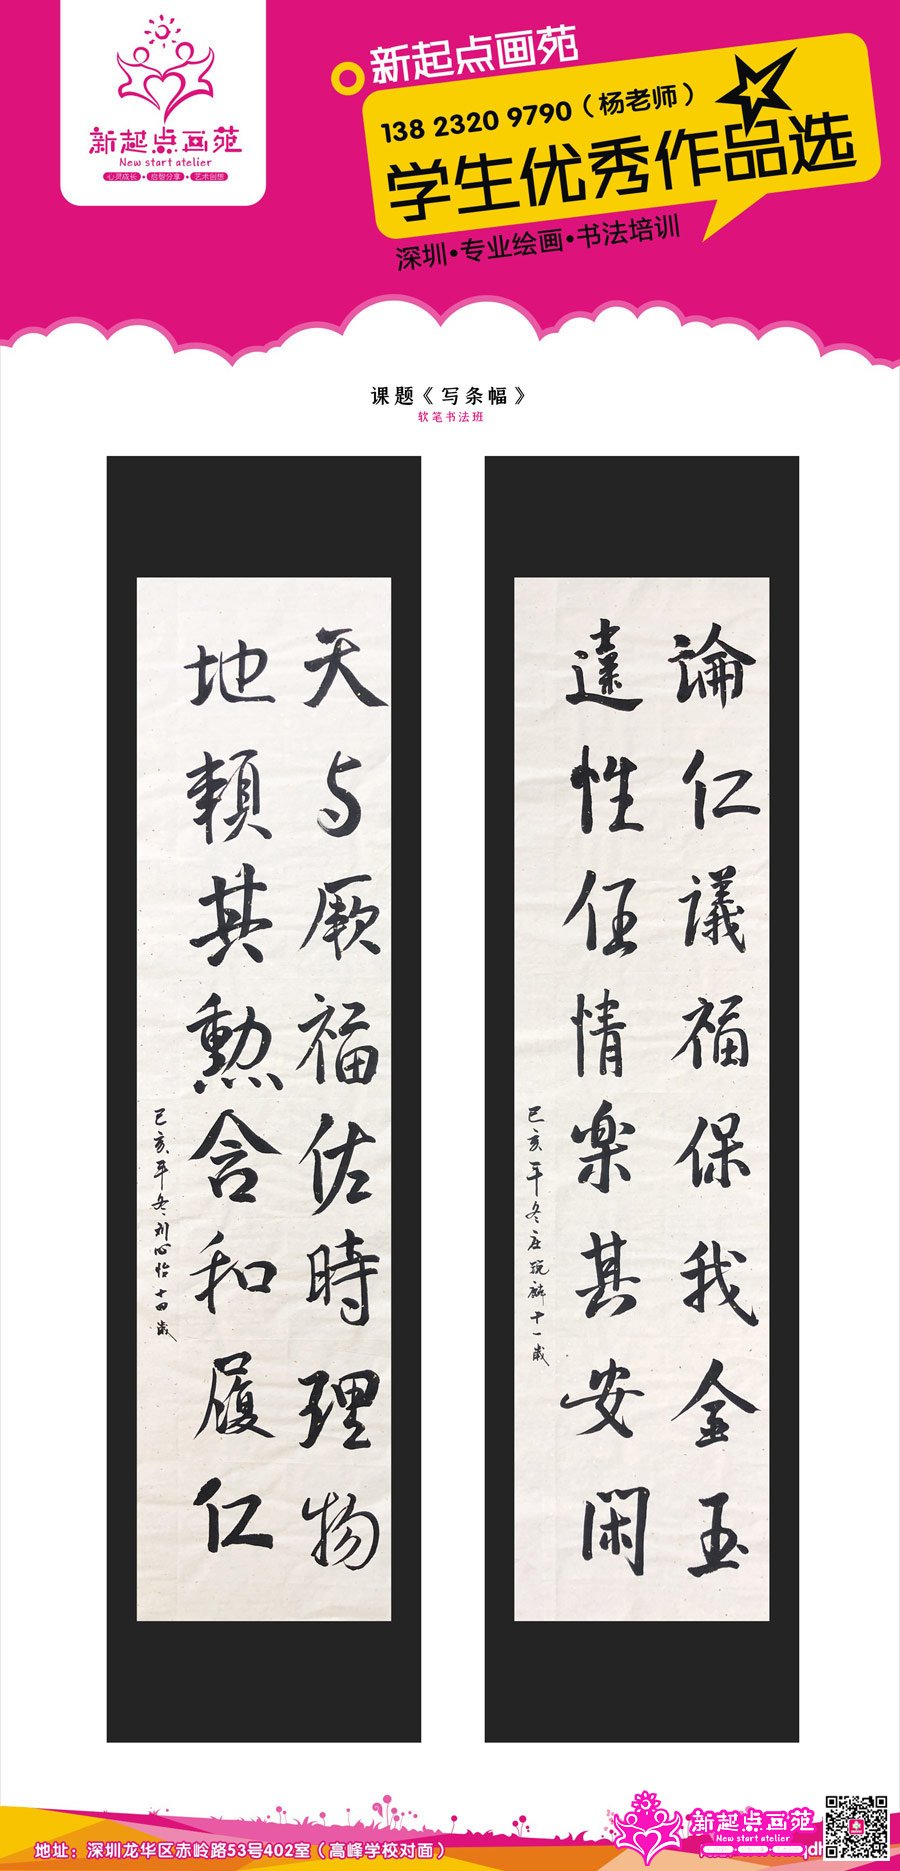 新起点画苑
New start atelier
心灵成长·启智分享·艺术创想
新起点画苑
138 2320 9790（杨老师）
学生优秀作品选
深圳·专业绘画·书法培训
课题《写条幅》
软笔书法班
論仁議福保我金玉
遠性任情楽其安閑
己亥年冬庄琬麟十一歲
天与厥福佐時理物
地賴其勲含和履仁
己亥年冬刘心怡十四歲
地址：深圳龙华区赤岭路53号402室（高峰学校对面）
新起点画苑
New start atelier